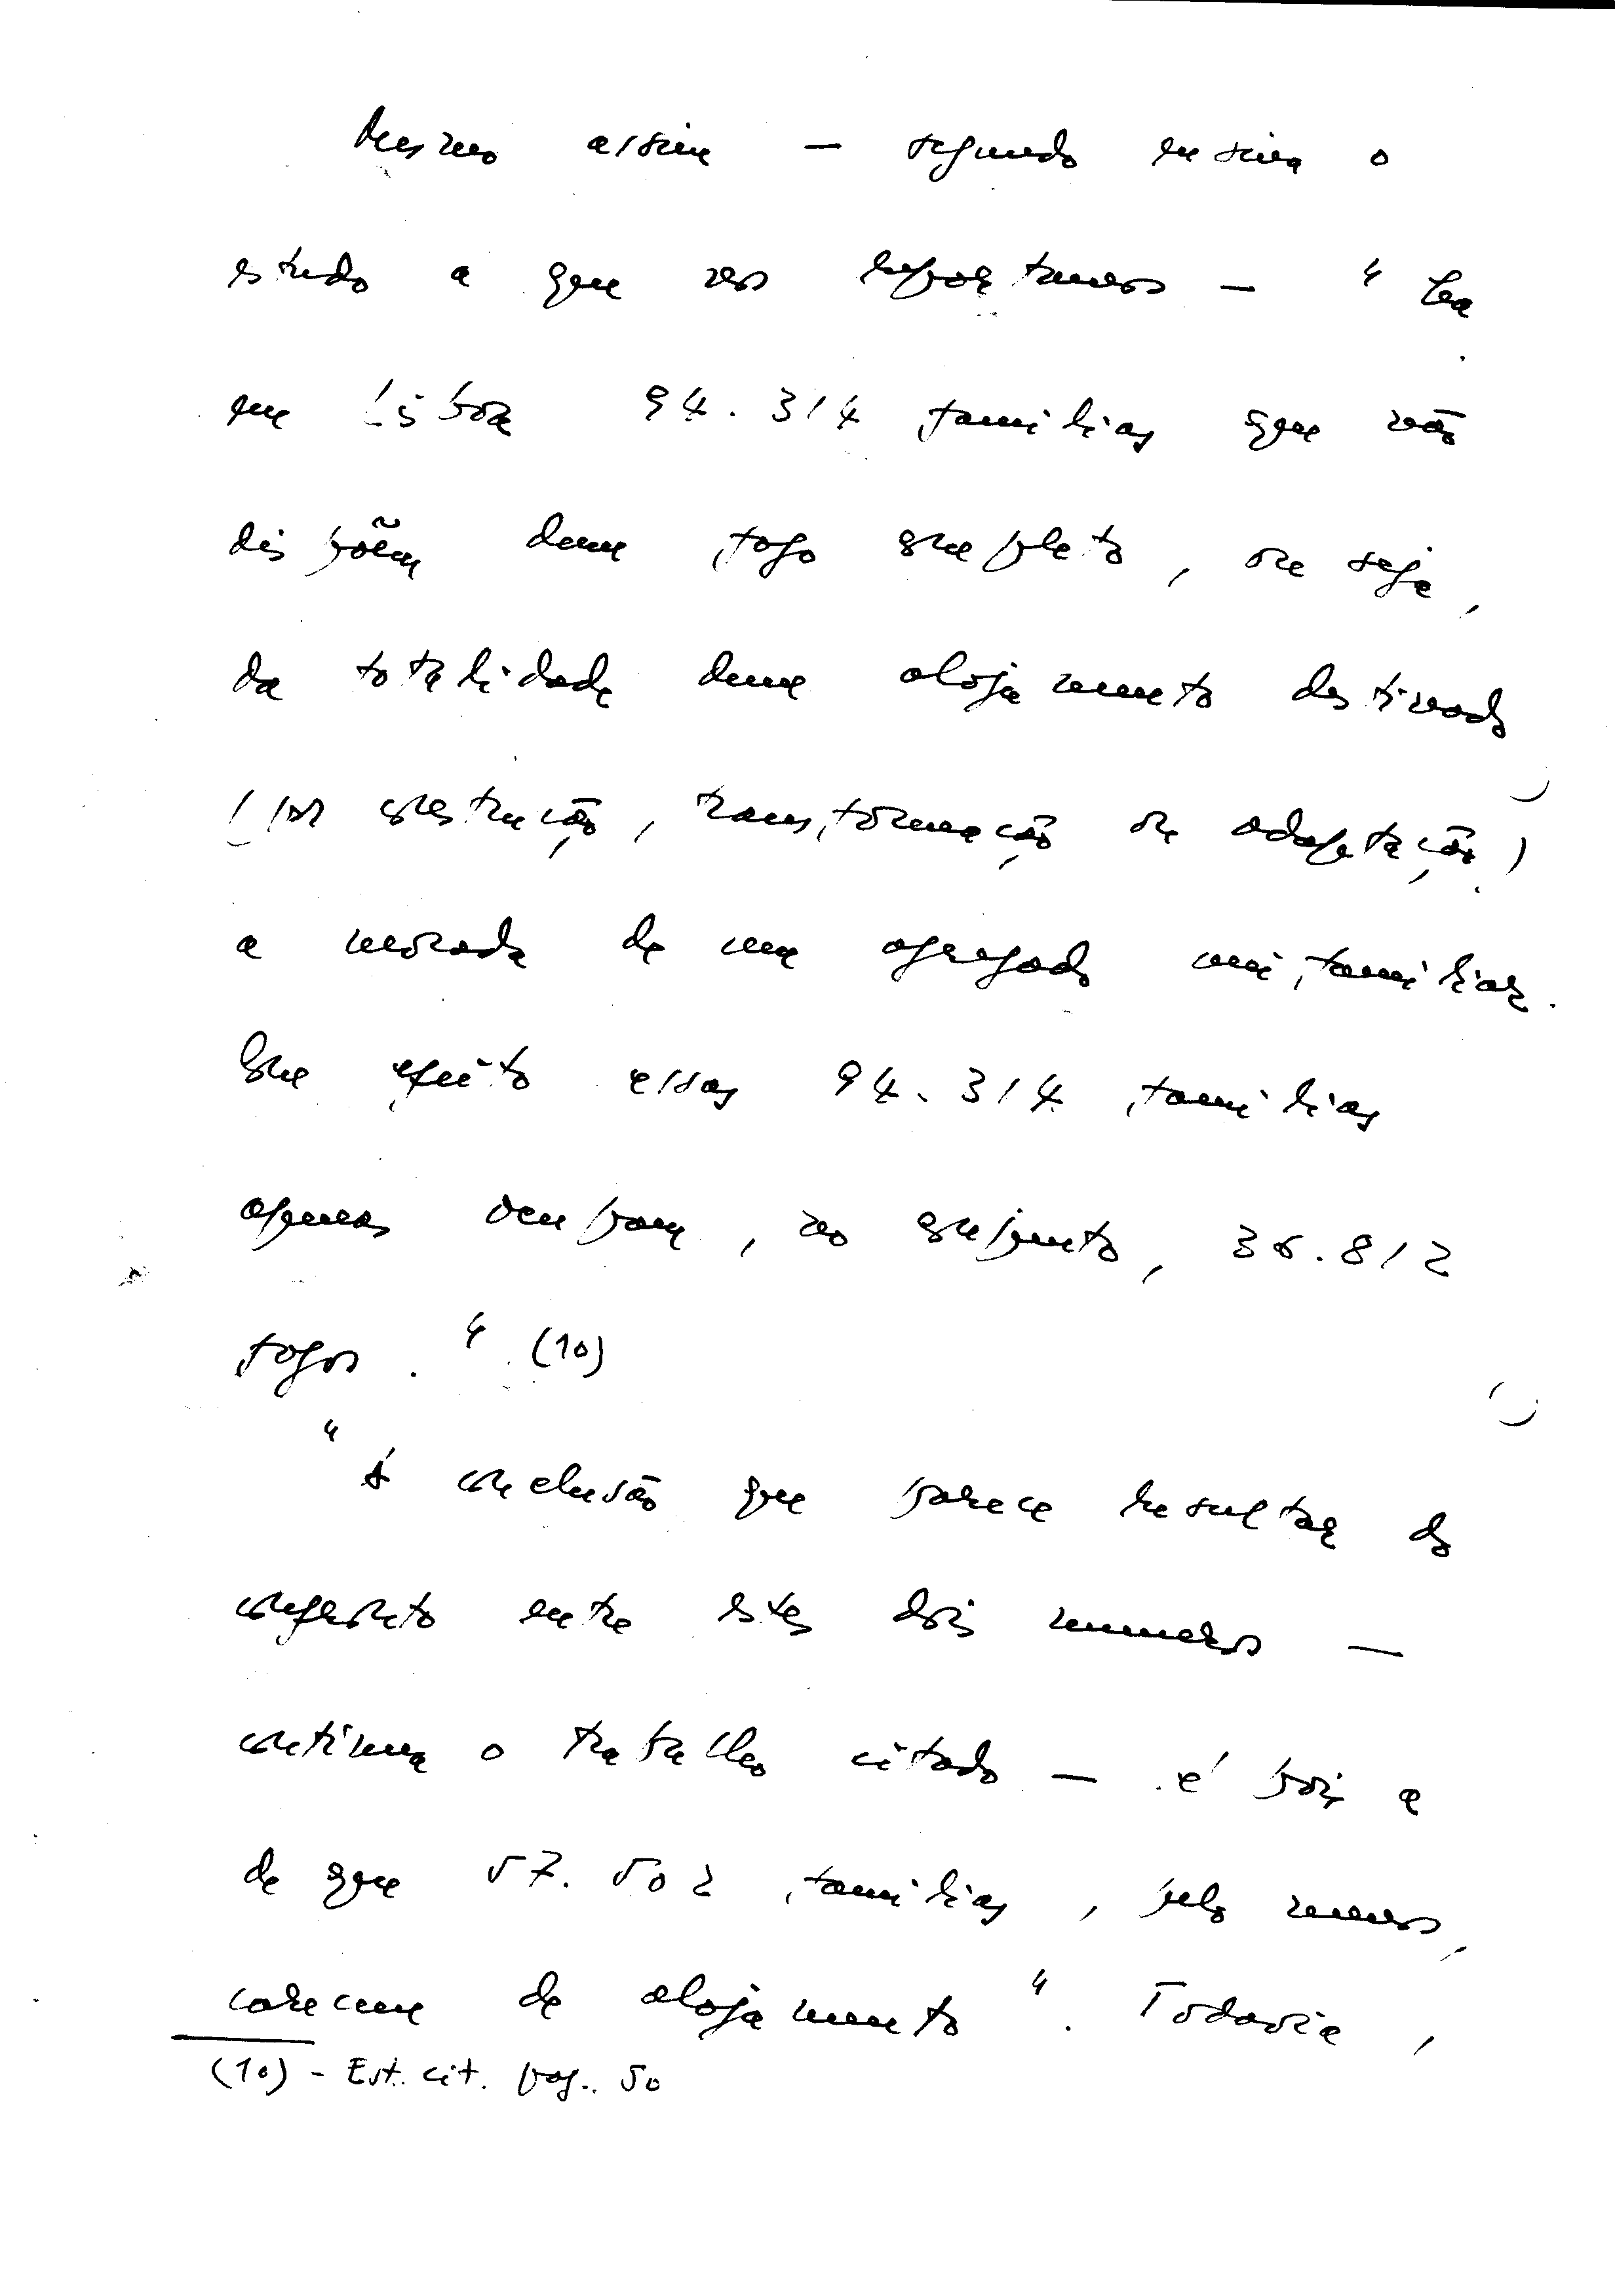 Mesmo assim — segundo ensina o
estudo a que nos reportamos — "há
em Lisboa 94.314 familias que não
dispõem dum fogo completo, ou seja,
da totalidade dum alojamento destinado
(por construção, transformação ou adaptação)
a morada de um agregado unifamiliar.
Com efeito essas 94.314 familias
apenas ocupam, no conjunto, 36.812
fogos." (10)
"A conclusão que parece resultar do
confronto entre estes dois numeros —
continua o trabalho citado — é pois a
de que 57.502 familias, pelo menos,
carecem de alojamento". Todavia,
(10) - Est. cit. pag. 50